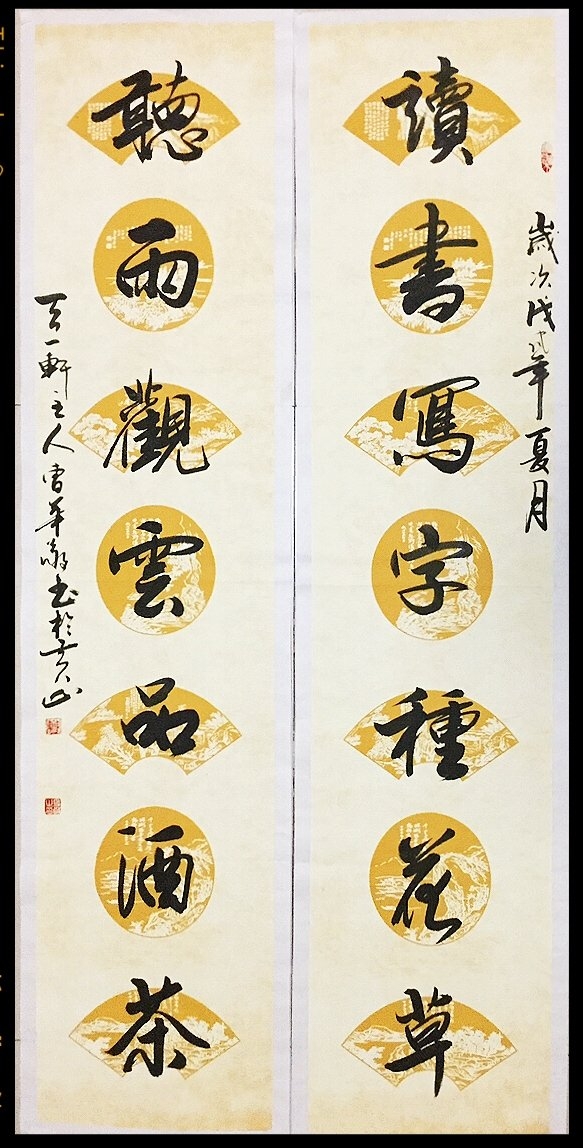 歲次戊戌年夏月
讀書寫字種花草
聽雨觀雲品酒茶
天一軒主人曹華敏書於黃山